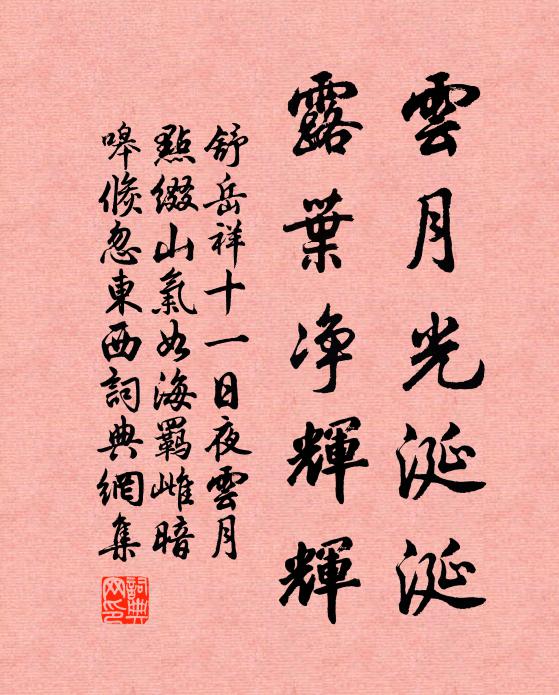 雲月光涎涎
露葉净輝輝
舒岳祥十一日夜雲月
點綴山氣如海羈雌暗
嗥倏忽東西詞典網集
詞典網印